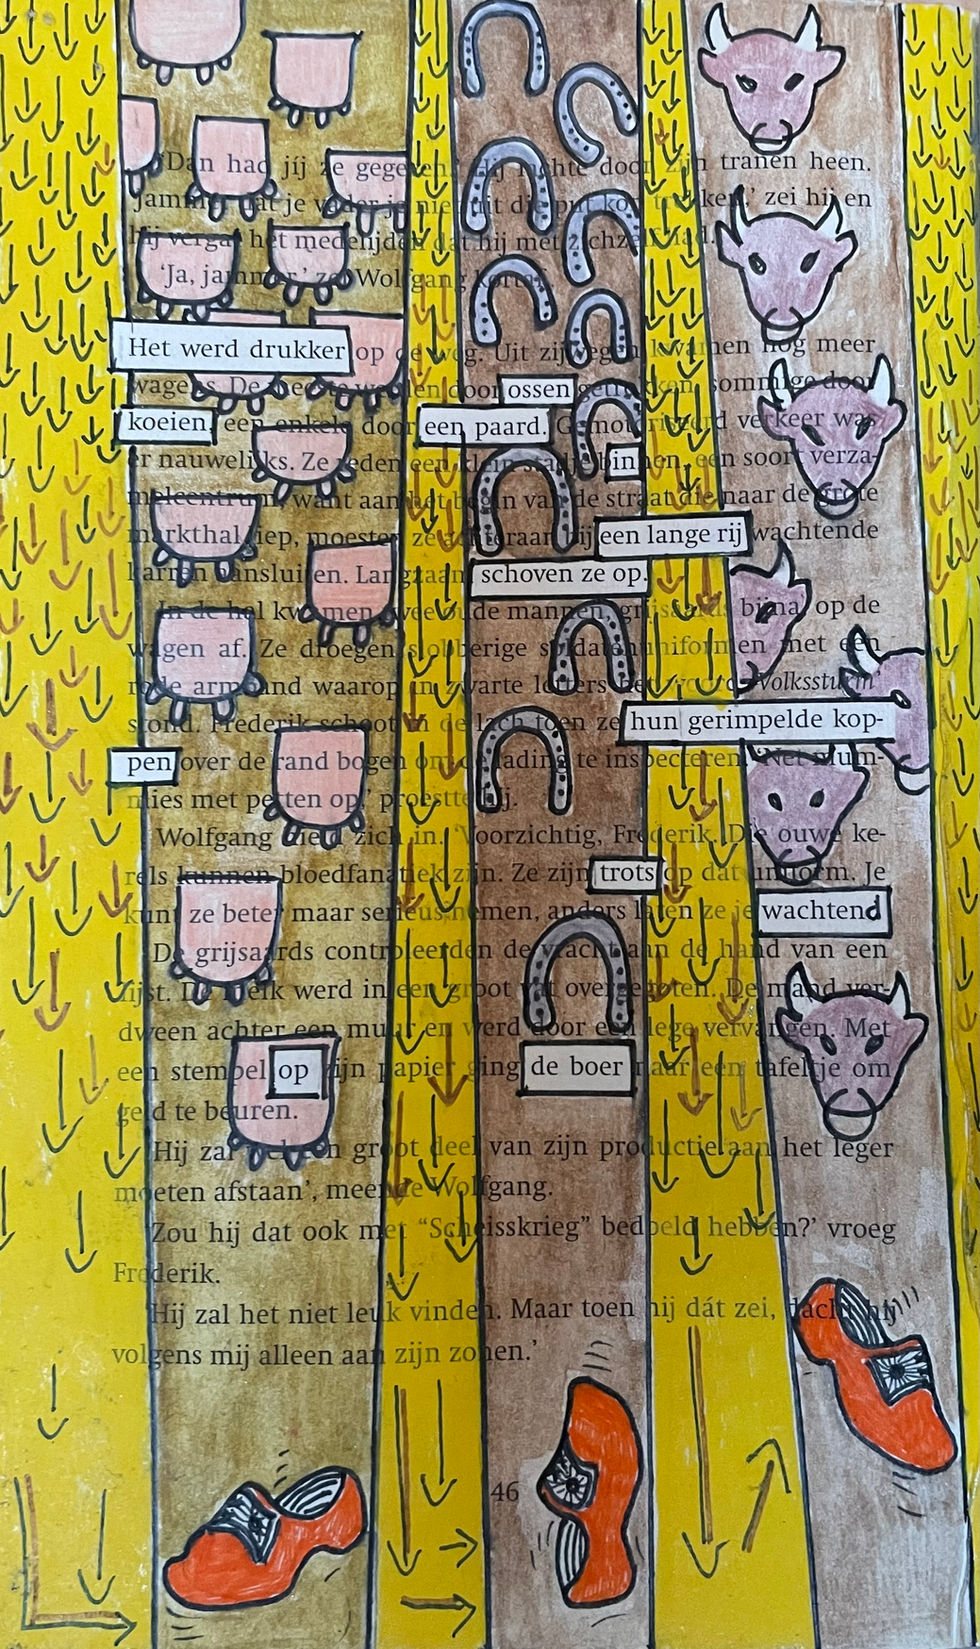 'Dan had jíj ze gegeven.' Hij lachte door zijn tranen heen.
'Jammer dat je vader je niet uit die put kon trekken,' zei hij en
hij vergat het medelijden dat hij met zichzelf had.
'Ja, jammer,' zei Wolfgang kortaf.
Het werd drukker op de weg. Uit zijwegen kwamen nog meer
wagens. De meeste werden door ossen getrokken, sommige door
koeien, een enkele door een paard. Gemotoriseerd verkeer was
er nauwelijks. Ze reden een klein stadje binnen, een soort verza-
melcentrum, want aan het begin van de straat die naar de grote
markthal liep, moesten ze achteraan bij een lange rij wachtende
karren aansluiten. Langzaam schoven ze op.
In de hal kwamen twee oude mannen, grijsaards bijna, op de
wagen af. Ze droegen slobberige soldatenuniformen met een
rode armband waarop in zwarte letters het woord 'Volkssturm'
stond. Frederik schoot in de lach toen ze hun gerimpelde kop-
pen over de rand bogen om de lading te inspecteren. 'Net mum-
mies met petten op,' proestte hij.
Wolfgang hield zich in. 'Voorzichtig, Frederik. Die ouwe ke-
rels kunnen bloedfanatiek zijn. Ze zijn trots op dat uniform. Je
kunt ze beter maar serieus nemen, anders laten ze je wachten.'
De grijsaards controleerden de vracht aan de hand van een
lijst. De melk werd in een groot vat overgegoten. De mand ver-
dween achter een muur en werd door een lege vervangen. Met
een stempel op zijn papier ging de boer naar een tafeltje om
geld te beuren.
'Hij zal een groot deel van zijn productie aan het leger
moeten afstaan', meende Wolfgang.
'Zou hij dat ook met “Scheisskrieg” bedoeld hebben?' vroeg
Frederik.
'Hij zal het niet leuk vinden. Maar toen hij dát zei, dacht hij
volgens mij alleen aan zijn zonen.'
46